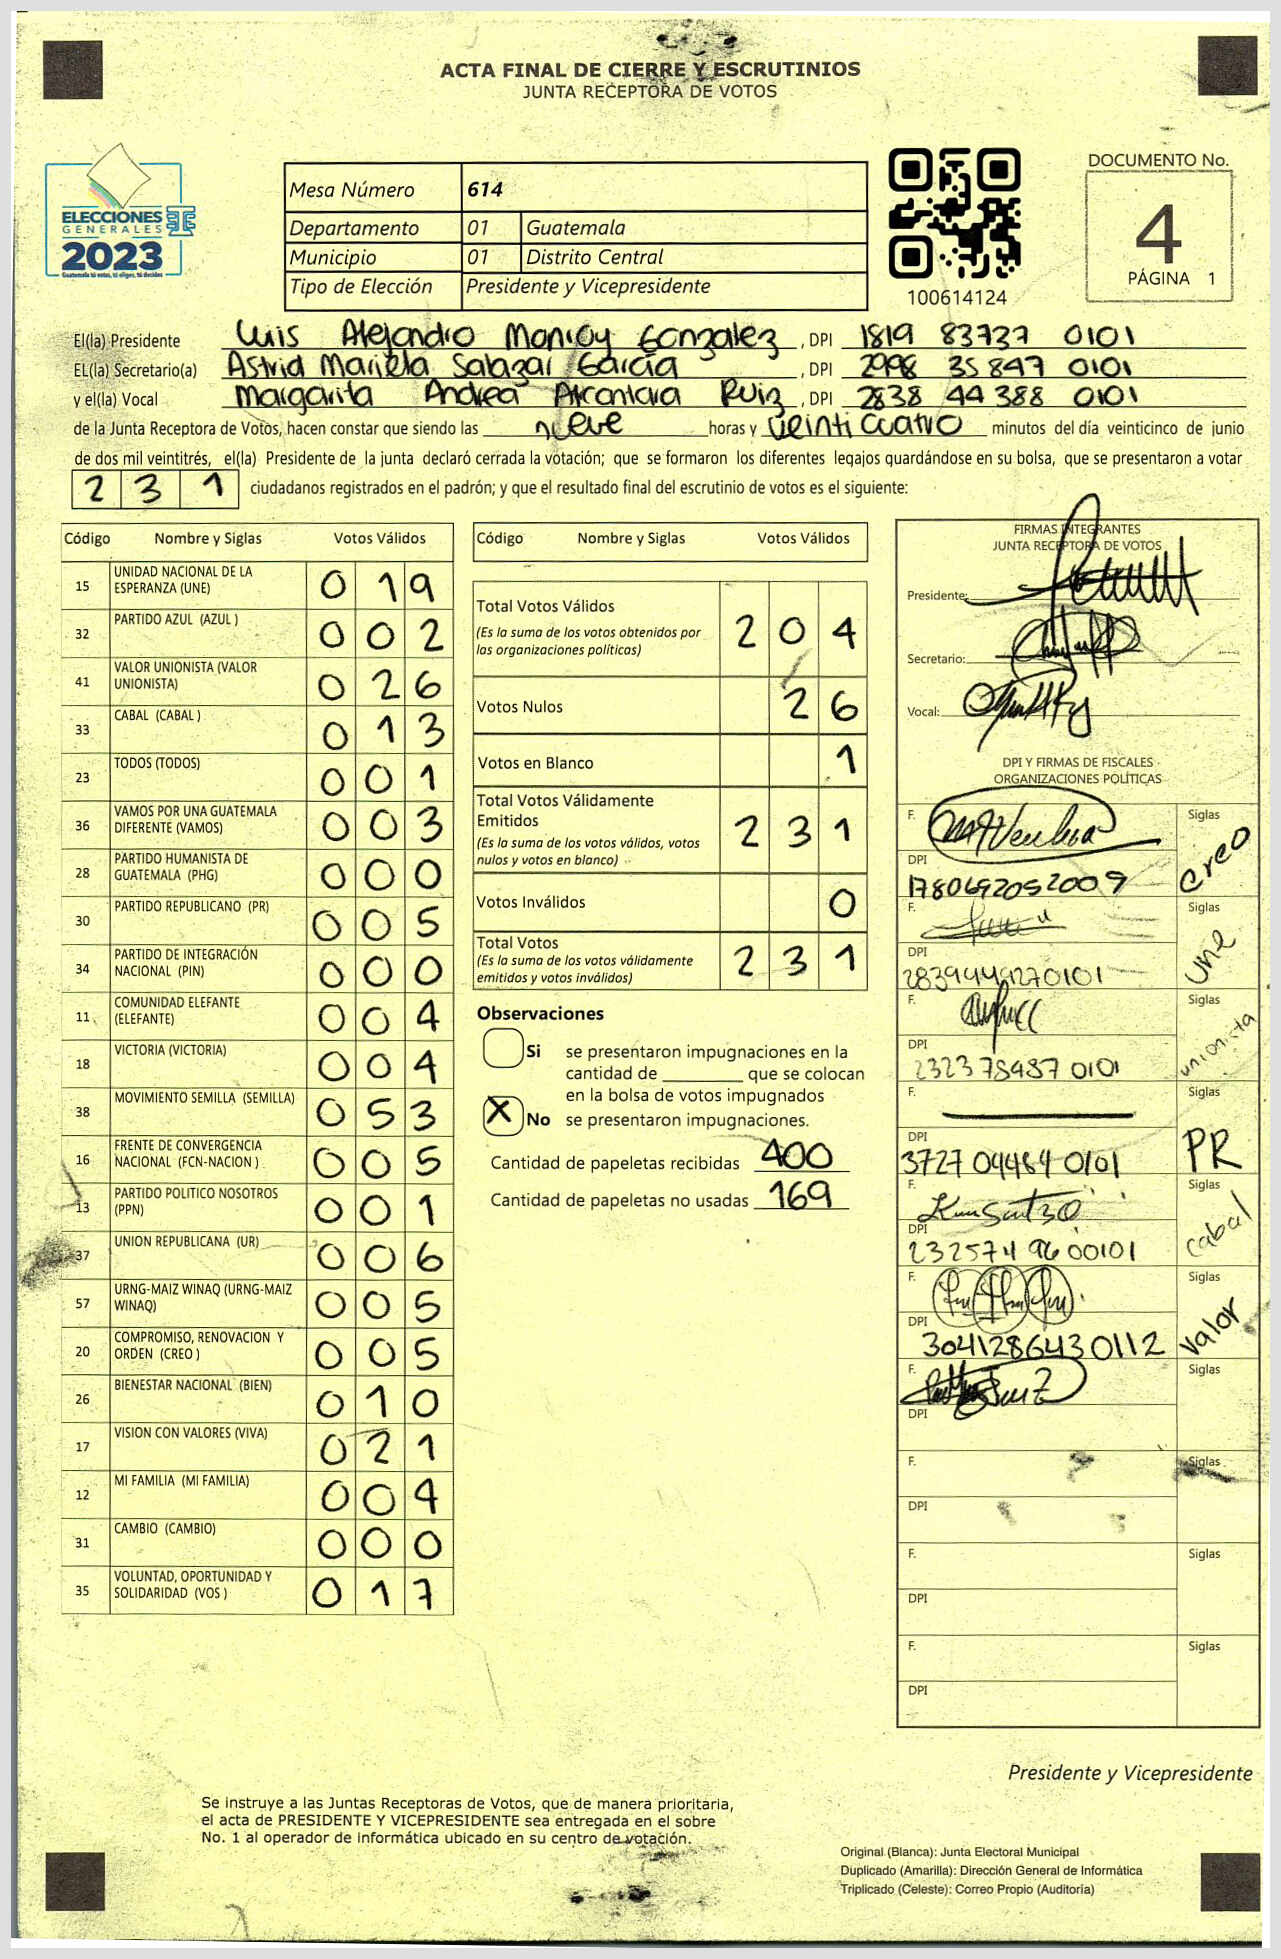 ACTA FINAL DE CIERRE Y ESCRUTINIOS
JUNTA RECEPTORA DE VOTOS
ELECCIONES
GENERALES
2023
Guatemala tú votas, tú eliges, tú decides
Mesa Número 614
Departamento 01 Guatemala
Municipio 01 Distrito Central
Tipo de Elección Presidente y Vicepresidente
100614124
DOCUMENTO No.
4
PÁGINA 1
El(la) Presidente Luis Alejandro Monroy Gonzalez, DPI 1819 83737 0101
EL(la) Secretario(a) Astrid Mariela Salazar García, DPI 2998 35847 0101
y el(la) Vocal Margarita Andrea Alcantara Ruiz, DPI 2838 44388 0101
de la Junta Receptora de Votos, hacen constar que siendo las nueve horas y veinticuatro minutos del día veinticinco de junio
de dos mil veintitrés, el(la) Presidente de la junta declaró cerrada la votación; que se formaron los diferentes legajos guardándose en su bolsa, que se presentaron a votar
2 3 1 ciudadanos registrados en el padrón; y que el resultado final del escrutinio de votos es el siguiente:
Código Nombre y Siglas Votos Válidos
15 UNIDAD NACIONAL DE LA ESPERANZA (UNE) 0 1 9
32 PARTIDO AZUL (AZUL ) 0 0 2
41 VALOR UNIONISTA (VALOR UNIONISTA) 0 2 6
33 CABAL (CABAL ) 0 1 3
23 TODOS (TODOS) 0 0 1
36 VAMOS POR UNA GUATEMALA DIFERENTE (VAMOS) 0 0 3
28 PARTIDO HUMANISTA DE GUATEMALA (PHG) 0 0 0
30 PARTIDO REPUBLICANO (PR) 0 0 5
34 PARTIDO DE INTEGRACIÓN NACIONAL (PIN) 0 0 0
11 COMUNIDAD ELEFANTE (ELEFANTE) 0 0 4
18 VICTORIA (VICTORIA) 0 0 4
38 MOVIMIENTO SEMILLA (SEMILLA) 0 5 3
16 FRENTE DE CONVERGENCIA NACIONAL (FCN-NACION ) 0 0 5
13 PARTIDO POLITICO NOSOTROS (PPN) 0 0 1
37 UNION REPUBLICANA (UR) 0 0 6
57 URNG-MAIZ WINAQ (URNG-MAIZ WINAQ) 0 0 5
20 COMPROMISO, RENOVACION Y ORDEN (CREO ) 0 0 5
26 BIENESTAR NACIONAL (BIEN) 0 1 0
17 VISION CON VALORES (VIVA) 0 2 1
12 MI FAMILIA (MI FAMILIA) 0 0 4
31 CAMBIO (CAMBIO) 0 0 0
35 VOLUNTAD, OPORTUNIDAD Y SOLIDARIDAD (VOS ) 0 1 7
Código Nombre y Siglas Votos Válidos
Total Votos Válidos 2 0 4
(Es la suma de los votos obtenidos por
las organizaciones políticas)
Votos Nulos 2 6
Votos en Blanco 1
Total Votos Válidamente
Emitidos 2 3 1
(Es la suma de los votos válidos, votos
nulos y votos en blanco)
Votos Inválidos 0
Total Votos 2 3 1
(Es la suma de los votos válidamente
emitidos y votos inválidos)
Observaciones
Si se presentaron impugnaciones en la
cantidad de ________ que se colocan
en la bolsa de votos impugnados
X No se presentaron impugnaciones.
Cantidad de papeletas recibidas 400
Cantidad de papeletas no usadas 169
FIRMAS INTEGRANTES
JUNTA RECEPTORA DE VOTOS
Presidente:
Secretario:
Vocal:
DPI Y FIRMAS DE FISCALES
ORGANIZACIONES POLÍTICAS
F. Siglas creo
DPI 1780692052009
F. Siglas une
DPI 2839449270101
F. Siglas unionista
DPI 2323 78487 0101
F. Siglas PR
DPI 3727 04464 0101
F. Siglas cabal
DPI 232574 9600101
F. Siglas Valor
DPI 3041286430112
F. Siglas
DPI
F. Siglas
DPI
F. Siglas
DPI
F. Siglas
DPI
Presidente y Vicepresidente
Se instruye a las Juntas Receptoras de Votos, que de manera prioritaria,
el acta de PRESIDENTE Y VICEPRESIDENTE sea entregada en el sobre
No. 1 al operador de informática ubicado en su centro de votación.
Original (Blanca): Junta Electoral Municipal
Duplicado (Amarilla): Dirección General de Informática
Triplicado (Celeste): Correo Propio (Auditoría)